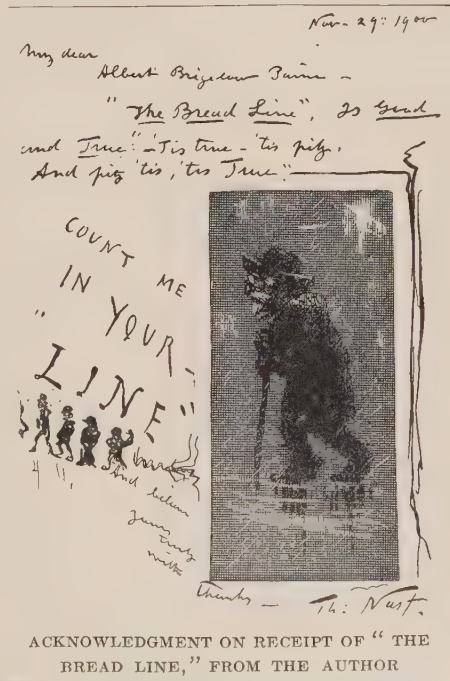 Nov- 29: 1900
My dear
Albert Bigelow Paine -
"The Bread Line", Is Good
and True: - 'Tis true - 'tis pity,
And pity 'tis, 'tis True".
COUNT ME
IN YOUR -
"LINE"
And believe
yours truly
with
thanks -
Th: Nast.
ACKNOWLEDGMENT ON RECEIPT OF "THE
BREAD LINE," FROM THE AUTHOR